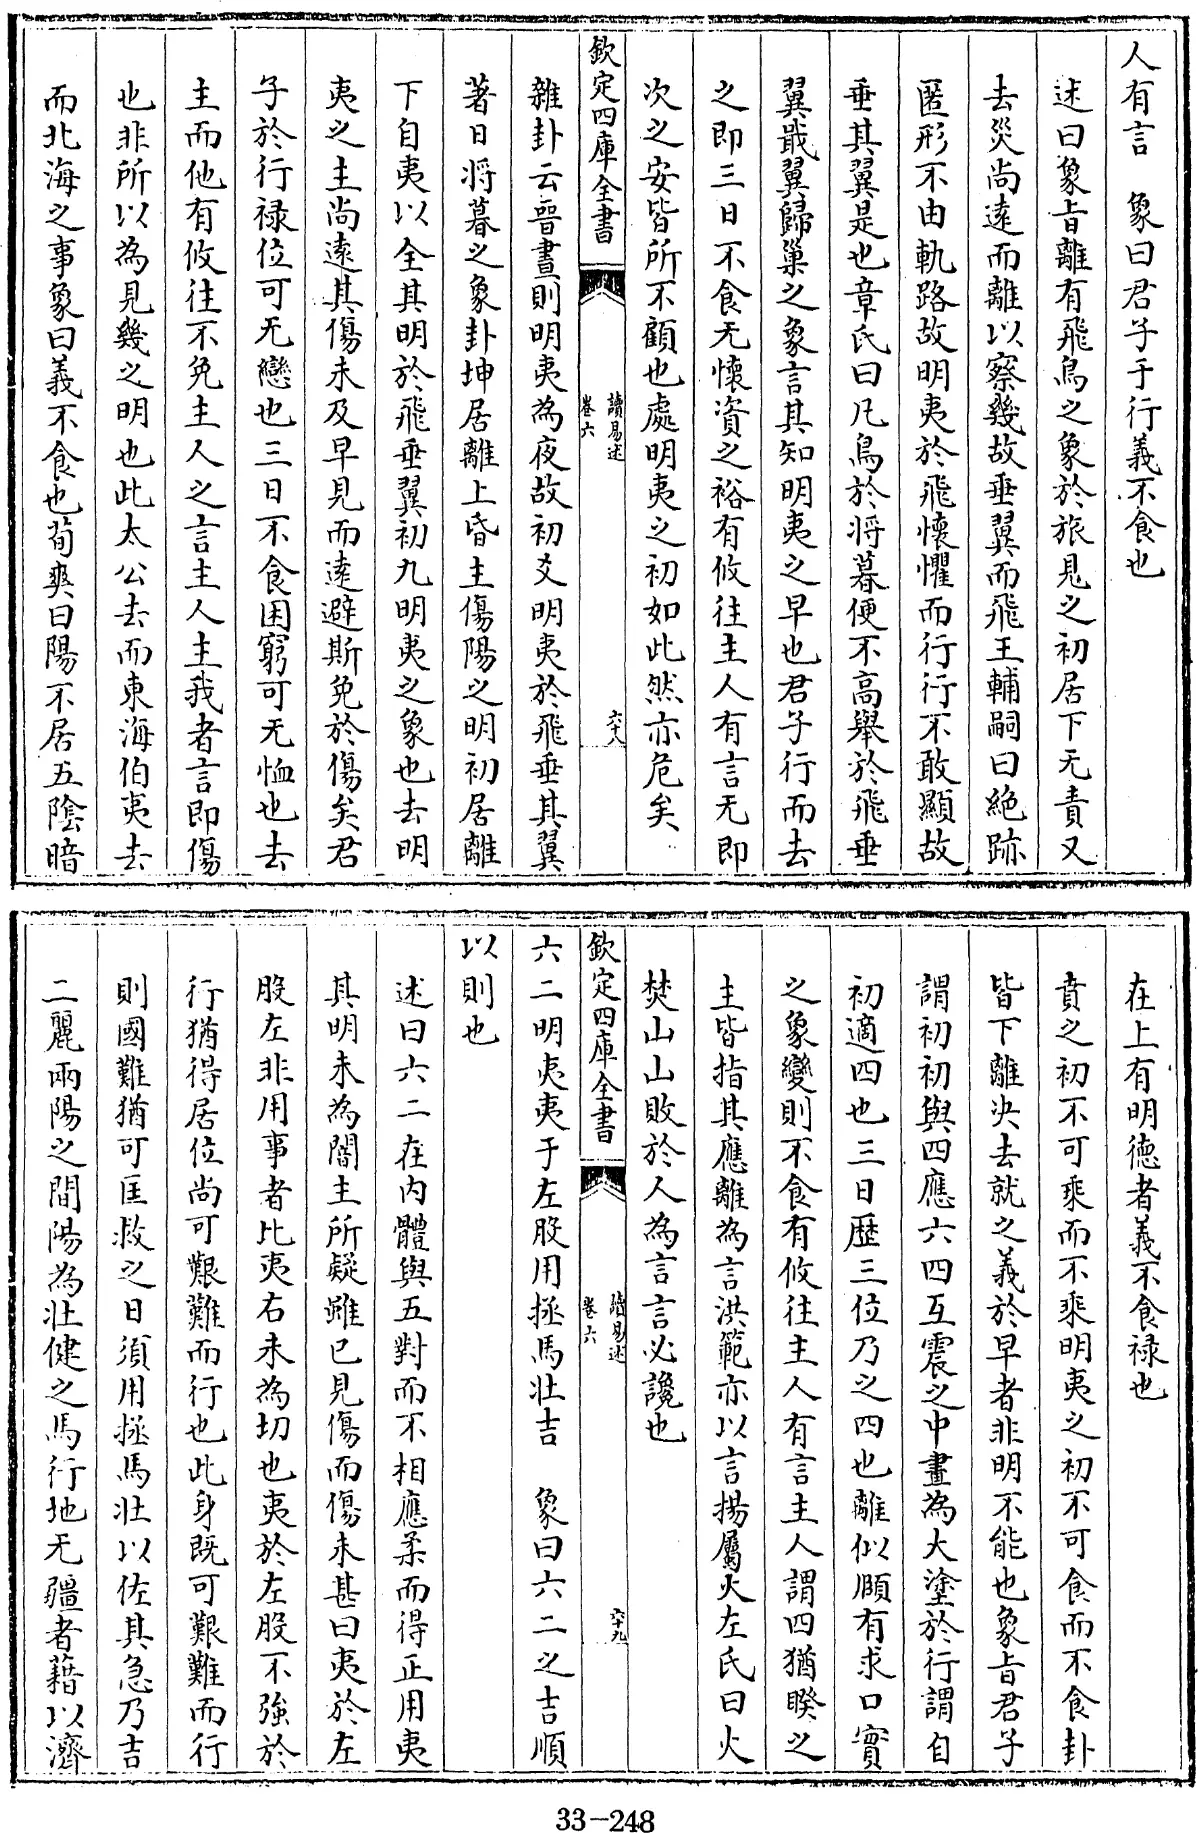 人有言　象曰君子于行義不食也
述曰象旨離有飛鳥之象於旅見之初居下无責又
去災尚遠而離以察幾故垂翼而飛王輔嗣曰絶跡
匿形不由軌路故明夷於飛懷懼而行行不敢顯故
垂其翼是也章氏曰凡鳥於将暮便不高舉於飛垂
翼戢翼歸巢之象言其知明夷之早也君子行而去
之即三日不食无懷資之裕有攸往主人有言无即
次之安皆所不顧也處明夷之初如此然亦危矣
欽定四庫全書
讀易述
卷六
六十八
雜卦云晉晝則明夷為夜故初爻明夷於飛垂其翼
著日将暮之象卦坤居離上昏主傷陽之明初居離
下自夷以全其明於飛垂翼初九明夷之象也去明
夷之主尚遠其傷未及早見而遠避斯免於傷矣君
子於行禄位可无戀也三日不食困窮可无恤也去
主而他有攸往不免主人之言主人主我者言即傷
也非所以為見幾之明也此太公去而東海伯夷去
而北海之事象曰義不食也荀爽曰陽不居五陰暗
在上有明徳者義不食禄也
賁之初不可乘而不乘明夷之初不可食而不食卦
皆下離决去就之義於早者非明不能也象旨君子
謂初初與四應六四互震之中畫為大塗於行謂自
初適四也三日歴三位乃之四也離似頥有求口實
之象變則不食有攸往主人有言主人謂四猶睽之
主皆指其應離為言洪範亦以言揚屬火左氏曰火
焚山山敗於人為言言必讒也
欽定四庫全書
讀易述
卷六
六十九
六二明夷夷于左股用拯馬壯吉　象曰六二之吉順
以則也
述曰六二在内體與五對而不相應柔而得正用夷
其明未為闇主所疑雖已見傷而傷未甚曰夷於左
股左非用事者比夷右未為切也夷於左股不強於
行猶得居位尚可艱難而行也此身既可艱難而行
則國難猶可匡救之日須用拯馬壯以佐其急乃吉
二麗兩陽之間陽為壯健之馬行地无疆者藉以濟
33-248